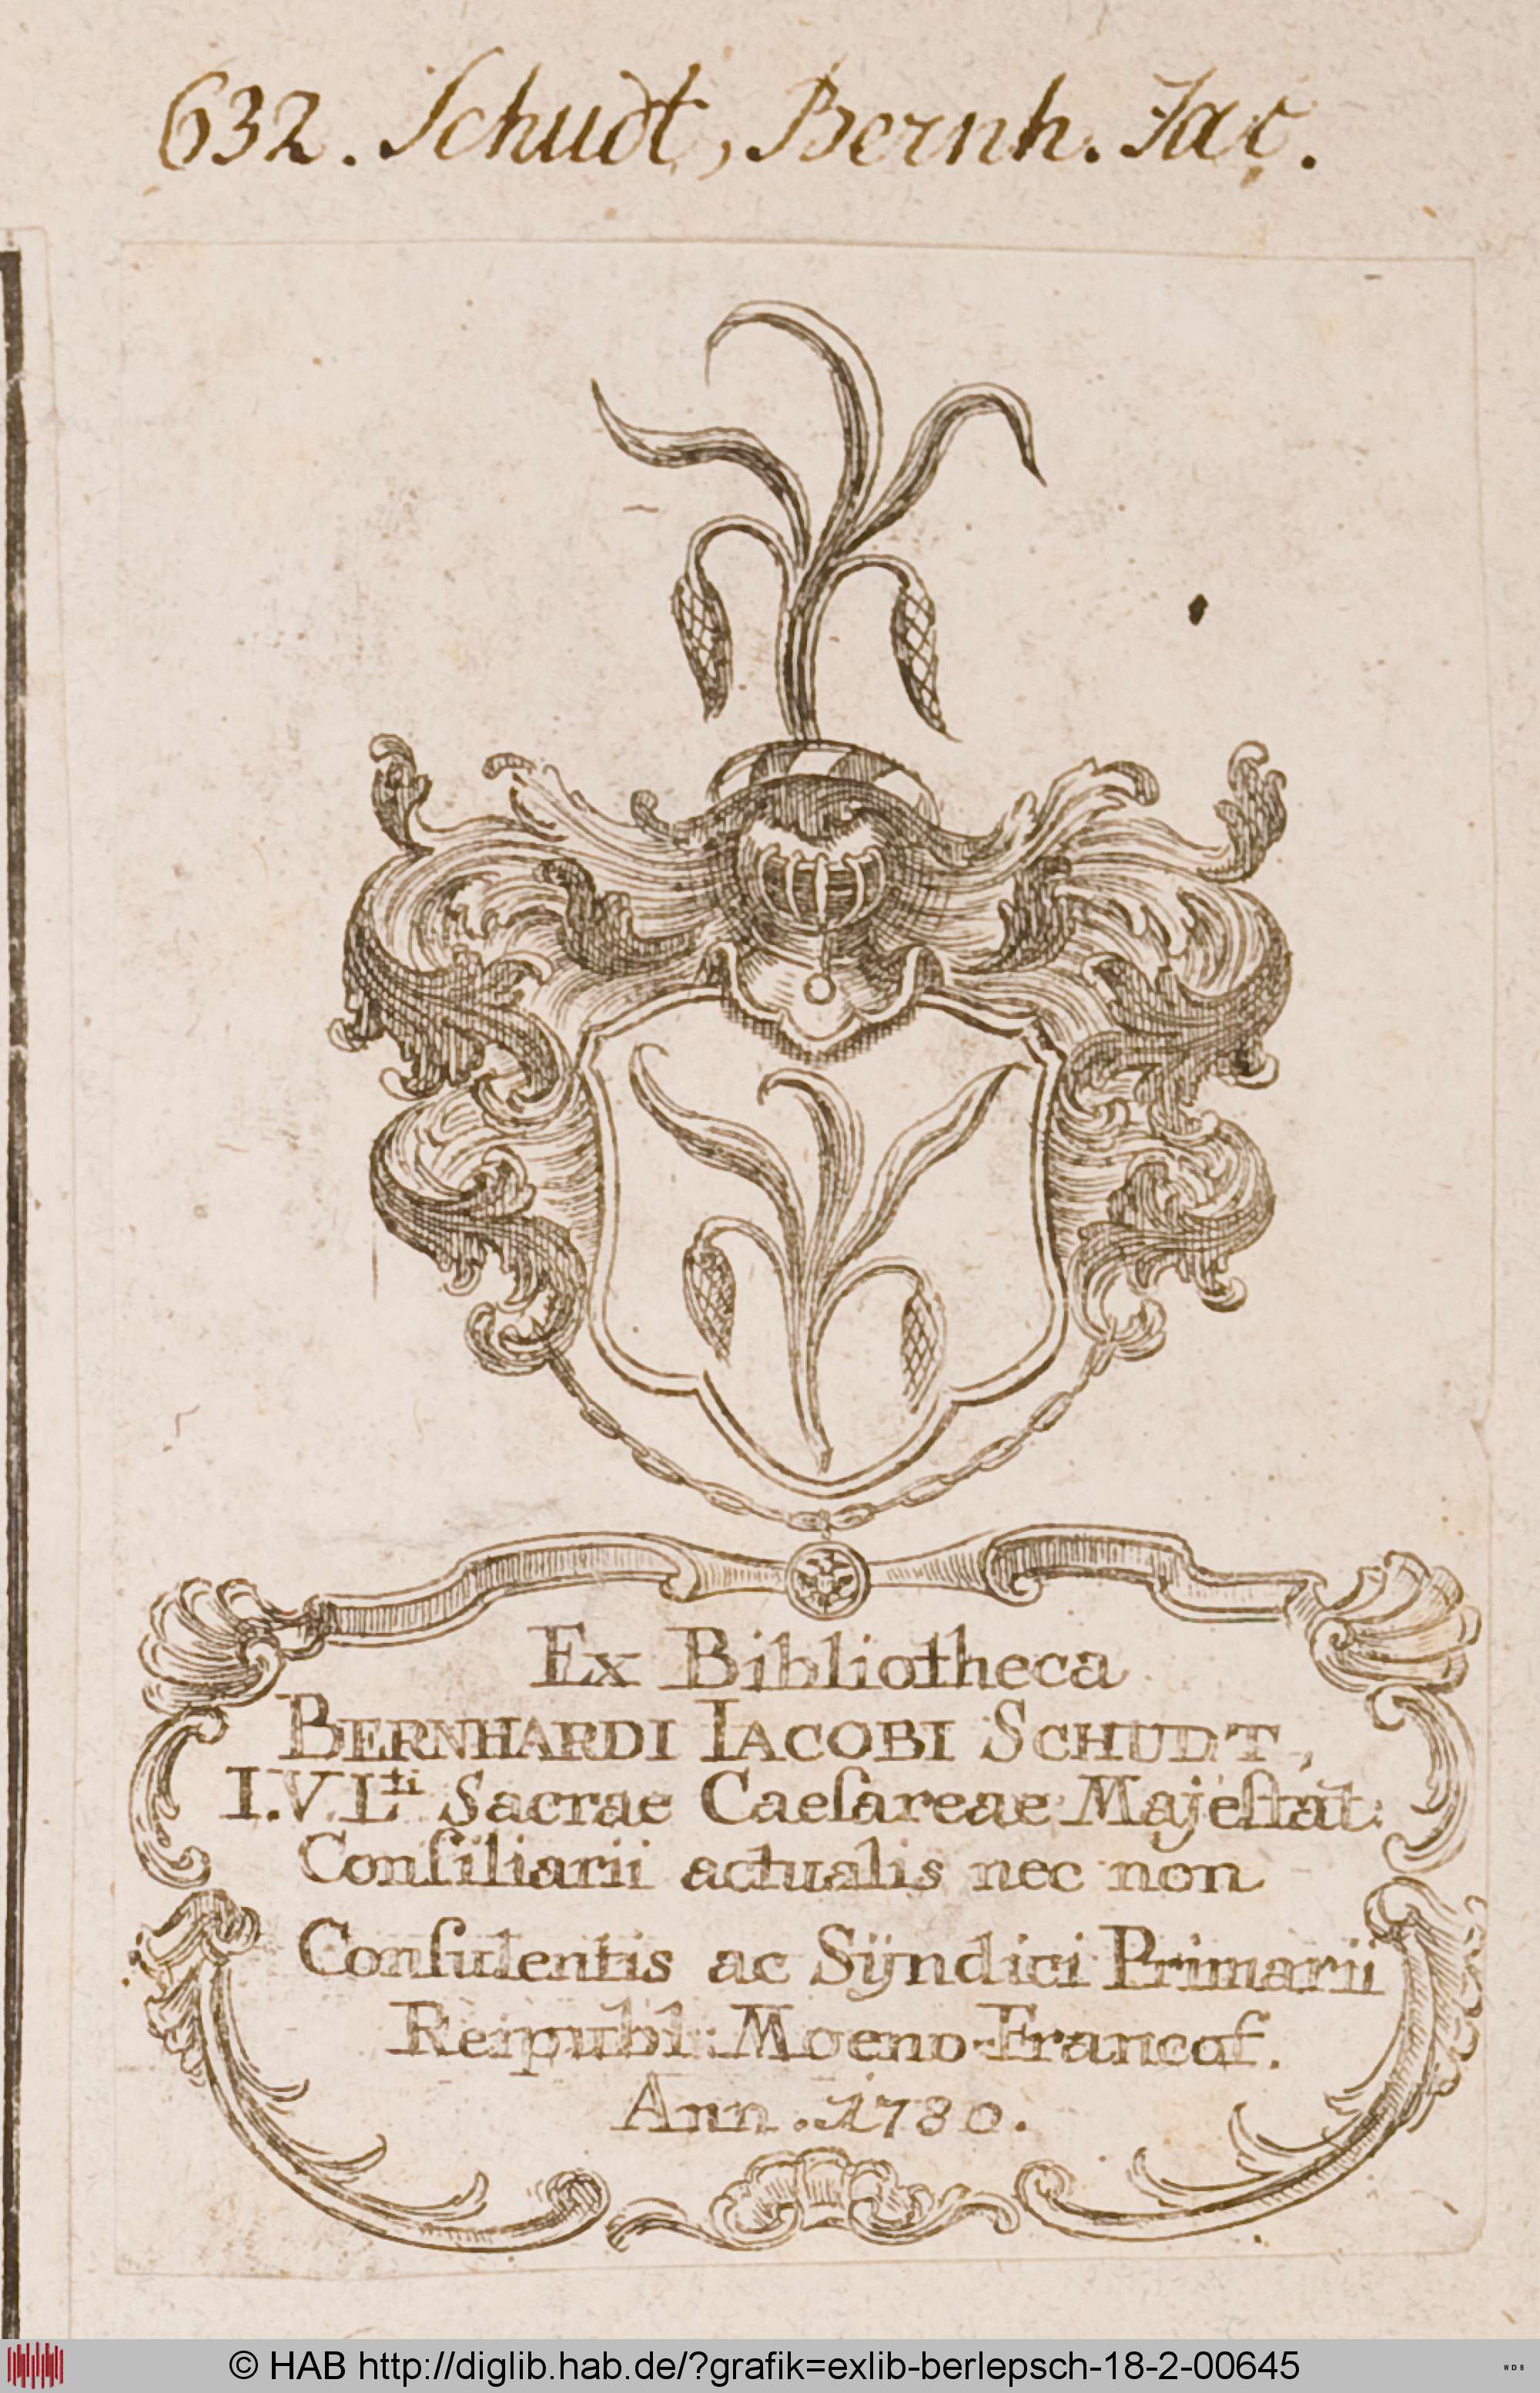 632. Schudt, Bernh. Jac.
Ex Bibliotheca
BERNHARDI IACOBI SCHUDT,
I.V.L.ti Sacrae Caeſareae Majeſtat:
Conſiliarii actualis nec non
Conſulentis ac Sÿndici Primarii
Reipubl: Moeno-Francof.
Ann. 1730.
© HAB http://diglib.hab.de/?grafik=exlib-berlepsch-18-2-00645
WDB